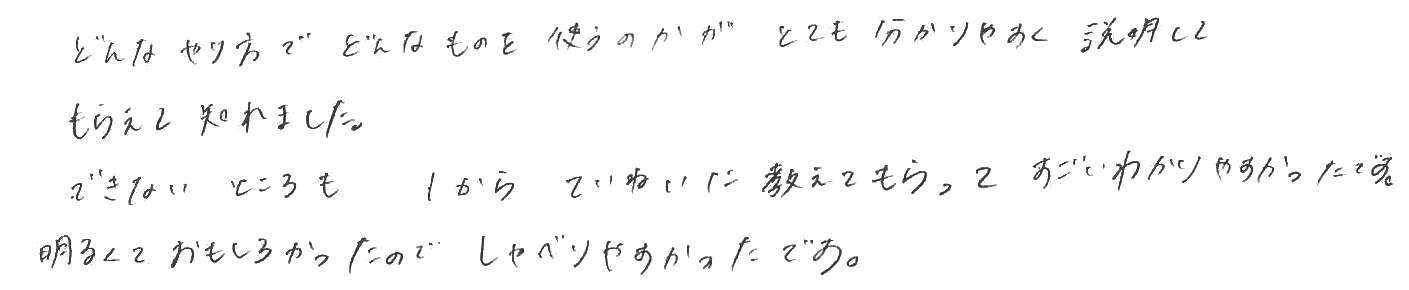 どんなやり方でどんなものを使うのかがとても分かりやすく説明して
もらえて知れました。
できないところも 1からていねいに教えてもらってすごいわかりやすかったです。
明るくておもしろかったのでしゃべりやすかったです。